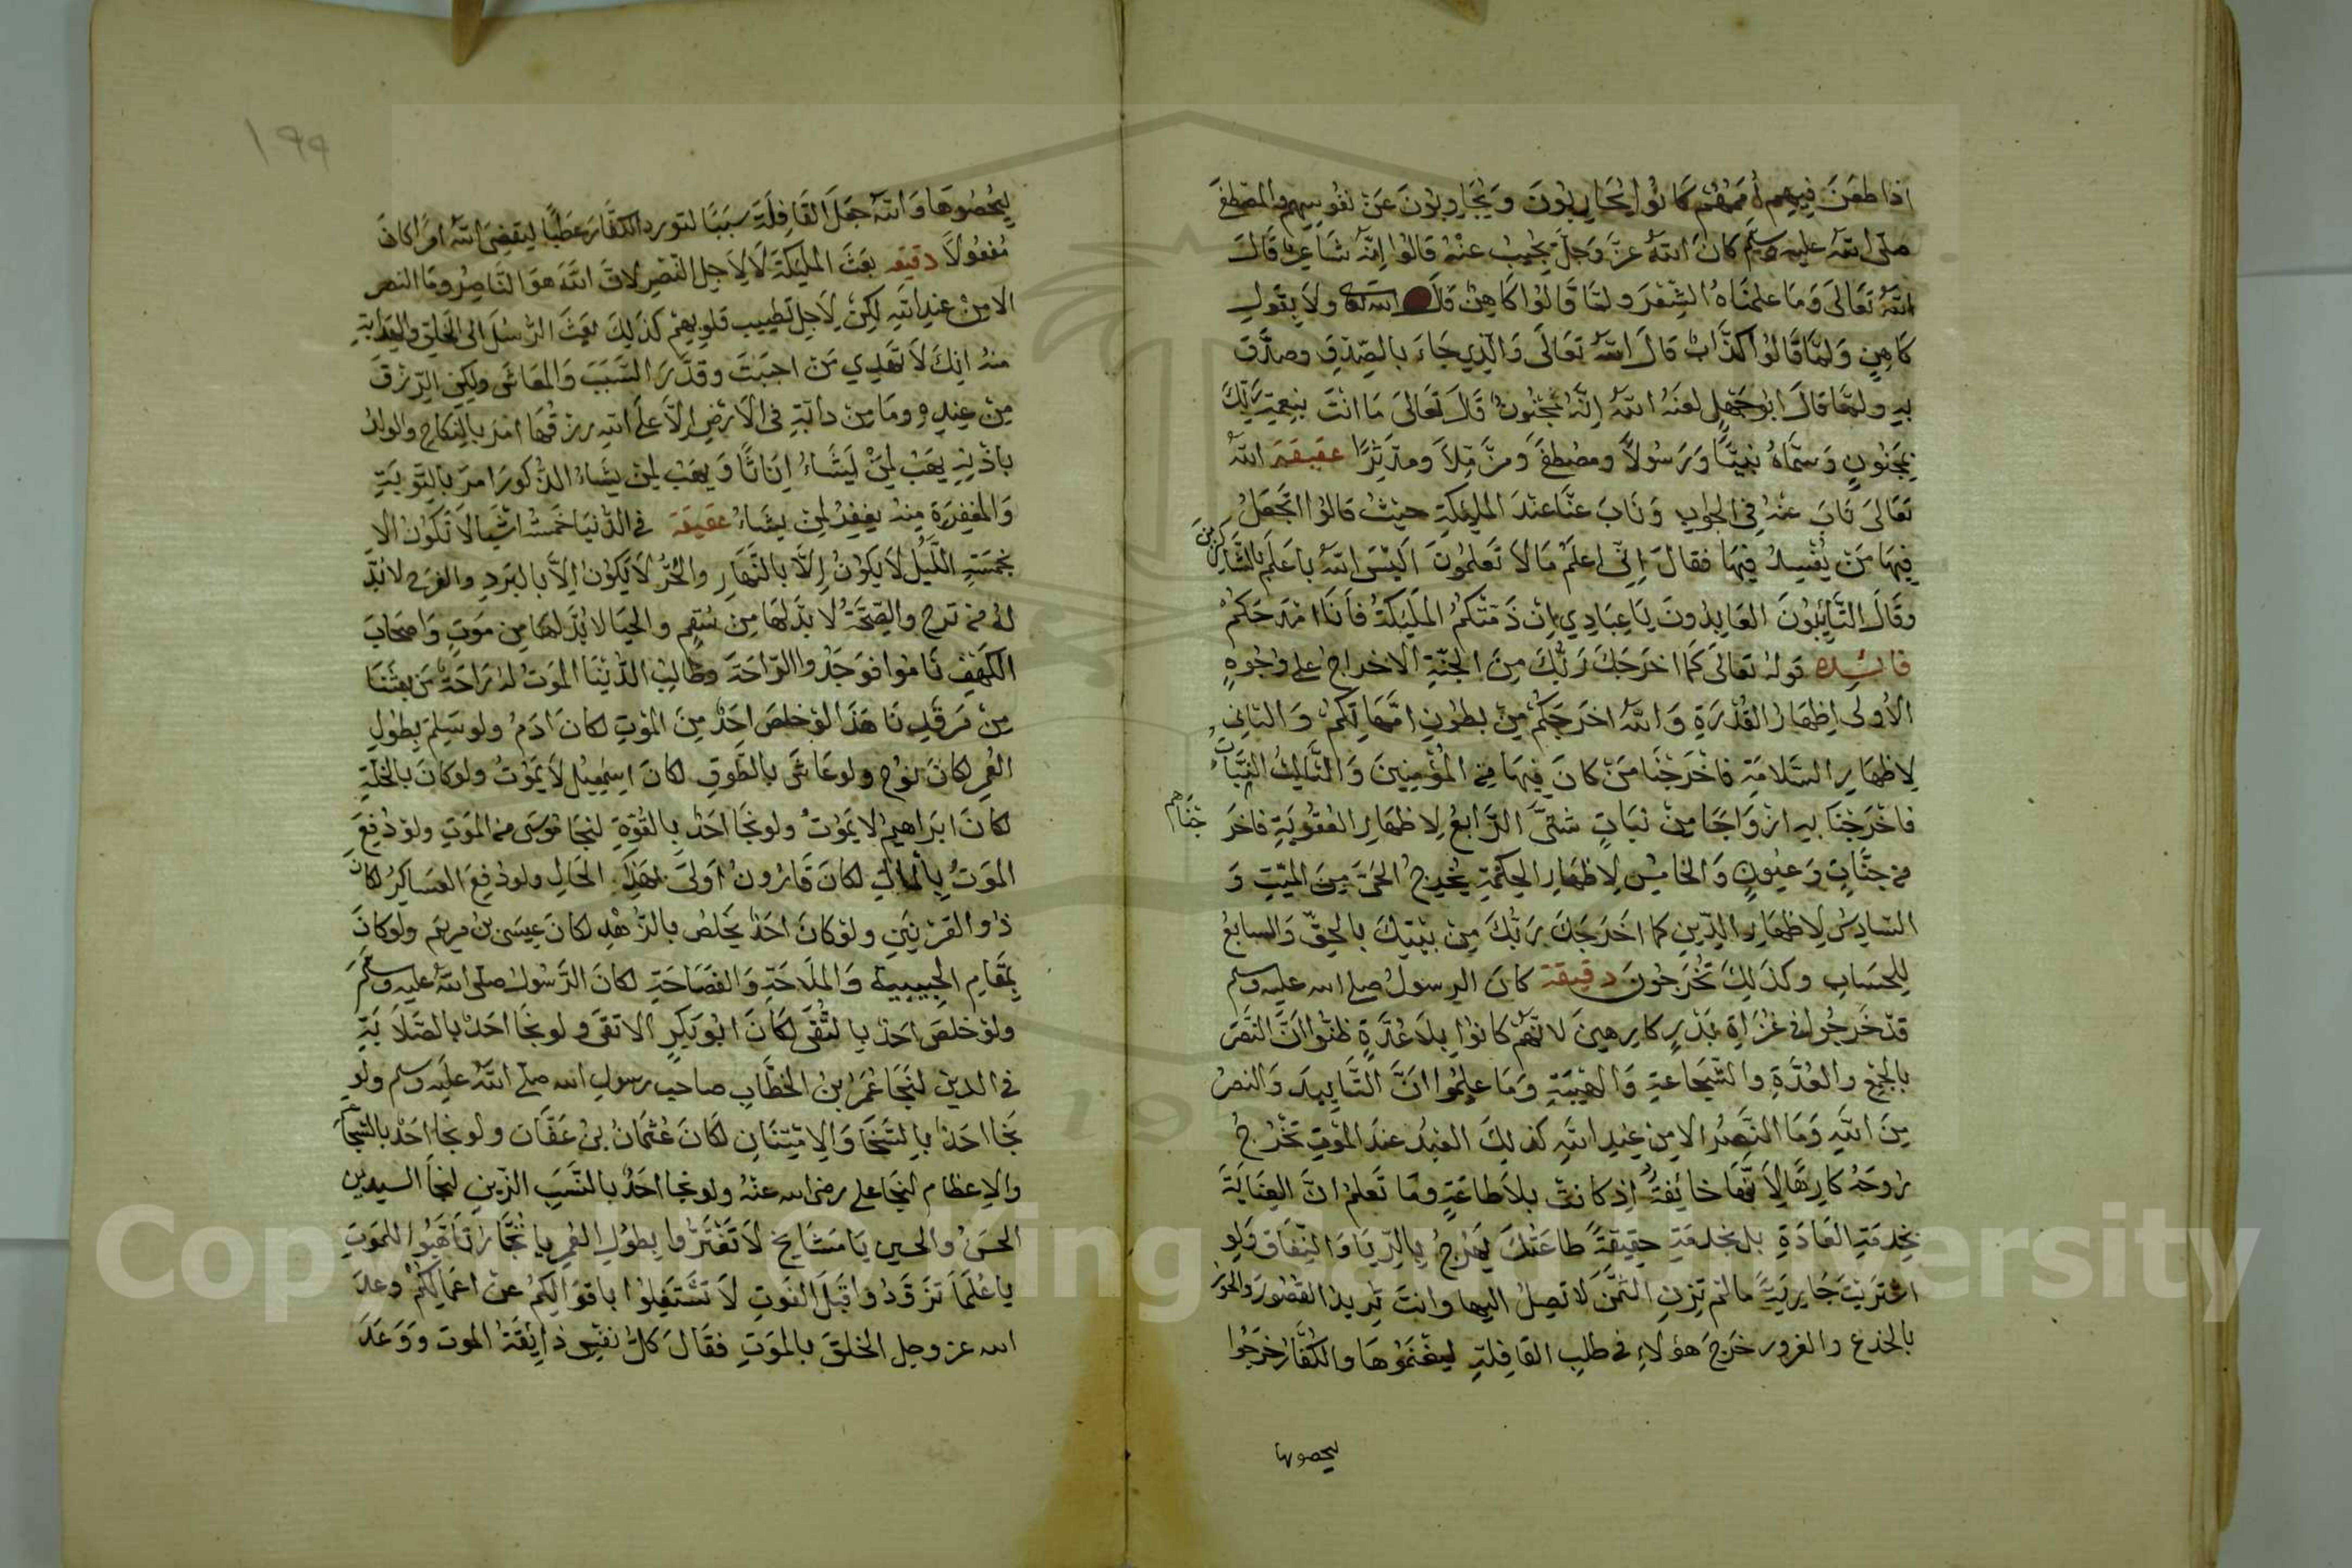 اذا طعن فيهم اممهم كانوا يحاربون ويجاوبون عن نفوسهم والمصطفى
صلى الله عليه وسلم كان الله عز وجل يجيب عنه قالوا انه شاعر قال
الله تعالى وما علمناه الشعر ولما قالوا كاهن قال الله تعالى ولا بقول
كاهن ولما قالوا كذاب قال الله تعالى والذي جاء بالصدق وصدق
به ولما قال ابو جهل لعنه الله انه لمجنون قال تعالى ما انت بنعمة ربك
بمجنون وسماه نبيا ورسولا ومصطفى ومزملا ومدثرا عقيقة الله
تعالى ناب عنه في الجواب وناب عنا عند المليكة حيث قالوا اتجعل
فيها من يفسد فيها فقال اني اعلم ما لا تعلمون اليس الله باعلم بالشاكرين
وقال التايبون العابدون يا عبادي ان ذمتكم المليكة فانا امدحكم
فايده قوله تعالى كما اخرجك ربك من الجنة الاخراج على وجوه
الاولى اظهار القدرة والله اخرجكم من بطون امهاتكم والثاني
لاظهار السلامة فاخرجنا من كان فيها من المؤمنين والثالث النبات
فاخرجنا به ازواجا من نبات شتى الرابع لاظهار العقوبة فاخر جناهم
من جنات وعيون والخامس لاظهار الحكمة يخرج الحي من الميت و
السادس لاظهار الدين كما اخرجك ربك من بيتك بالحق والسابع
للحساب وكذلك تخرجون دقيقة كان الرسول صلى الله عليه وسلم
قد خرجوا في غزاة بدر كارهين لانهم كانوا بلا عدة ظنوا ان النصر
بالجمع والعدة والشجاعة والهيبة وما علموا ان التاييد والنصر
من الله وما النصر الا من عند الله كذلك العبد عند الموت تخرج
روحه كارها لانها خائفة اذ كانت بلا طاعة وما تعلم ان العناية
بخدمة العادة بل بخدمة حقيقة طاعتك يهرج بالريا والنفاق ولو
اشتريت جارية ما لم تزن الثمن لا تصل اليها وانت تريد القصور والحور
بالخدع والغرور خرج هؤلاء في طلب القافلة ليغنموها والكفار خرجوا
ليحصوها
١٩٩
ليحصوها والله جعل القافلة سببا لتورد الكفار عطبا ليقضي الله امرا كان
مفعولا دقيقه بعث المليكة لا لاجل النصر لان الله هو الناصر وما النصر
الا من عند الله لكن لاجل تطييب قلوبهم كذلك بعث الرسل الى الخلق والهداية
منه انك لا تهدي من احببت وقدر السبب والمعاش ولكن الرزق
من عنده وما من دابة في الارض الا على الله رزقها امر بالنكاح والولد
باذنه يهب لمن يشاء اناثا ويهب لمن يشاء الذكور امر بالتوبة
والمغفرة منه يغفر لمن يشاء عقيقة في الدنيا خمسة اشيا لا تكون الا
بخمسة الليل لا يكون الا بالنهار والحر لا يكون الا بالبرد والفرح لا بد
له من ترح والصحة لا بد لها من سقم والحيا لا بد لها من موت واصحاب
الكهف ناموا فوجدوا الراحة وطالب الدنيا الموت له راحة من بعثنا
من مرقدنا هذا لو خلص احد من الموت لكان ادم ولو سلم بطول
العمر لكان نوح ولو عاش بالطوق لكان اسمعيل لا يموت ولو كان بالخلة
لكان ابراهيم لا يموت ولو نجا احد بالقوة لنجا موسى من الموت ولو دفع
الموت بالمال لكان قارون اولى بهذه الحال ولو دفع العساكر لكان
ذو القرنين ولو كان احد يخلص بالزهد لكان عيسى بن مريم ولو كان
بمقام الحبيبية والملاحة والفصاحة لكان الرسول صلى الله عليه وسلم
ولو خلص احد بالتقى لكان ابو بكر الاتقى ولو نجا احد بالصلابة
في الدين لنجا عمر بن الخطاب صاحب رسول الله صلى الله عليه وسلم ولو
نجا احد بالسخا والامتنان لكان عثمان بن عفان ولو نجا احد بالشجاعة
والاعظام لنجا علي رضي الله عنه ولو نجا احد بالنسب الزين لنجا السيدين
الحسن والحسين يا مشايخ لا تغتروا بطول العمر يا تجار تاهبوا للموت
يا علما تزودوا قبل الفوت لا تشتغلوا باقوالكم عن اعمالكم وعد
الله عز وجل الخلق بالموت فقال كل نفس ذايقة الموت ووعد